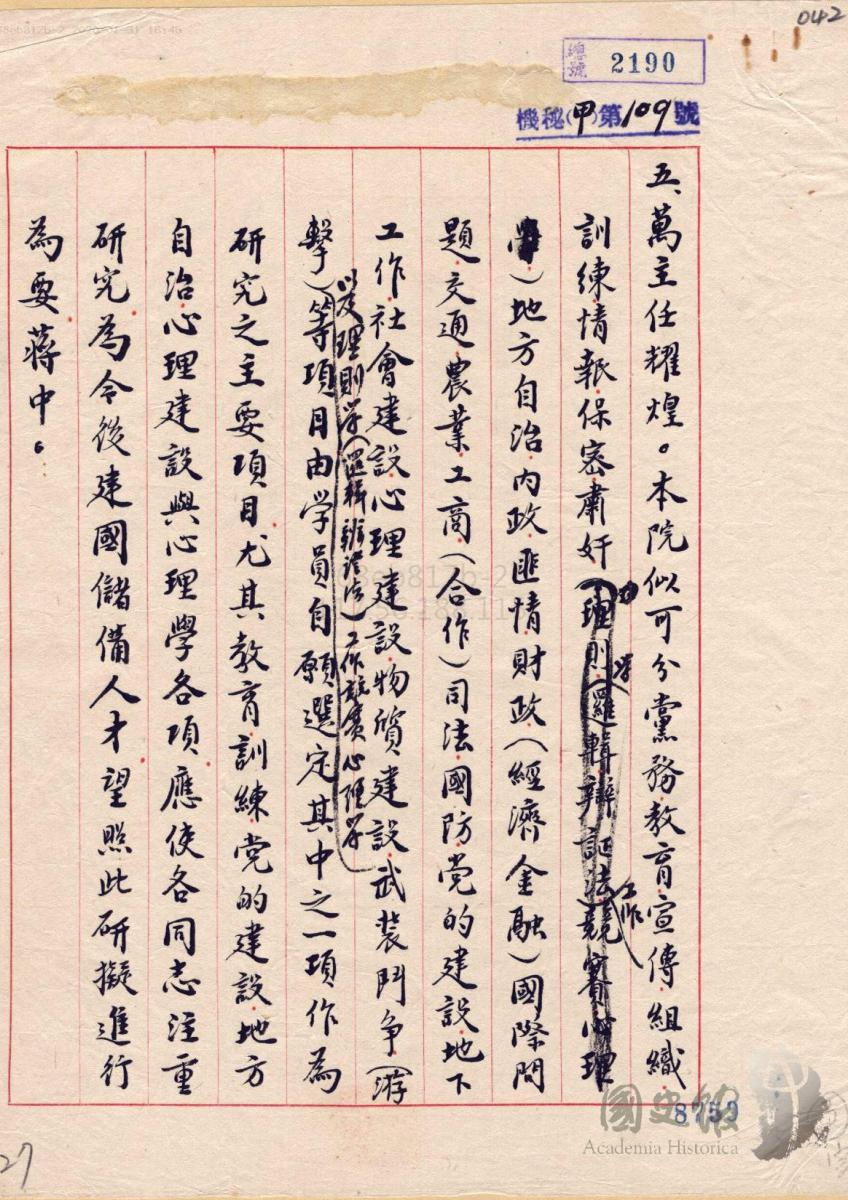 042
總號 2190
機秘(甲)第109號
五、萬主任耀煌。本院似可分黨務教育宣傳組織
訓練情報保密肅奸(理則學(羅輯辯証法)工作競賽心理
學)地方自治內政匪情財政(經濟金融)國際問
題交通農業工商(合作)司法國防党的建設地下
工作社會建設心理建設物質建設武裝鬥争(游
以及理則学(邏輯辨證法)工作競賽心理学
擊)等項目由学員自願選定其中之一項作為
研究之主要項目尤其教育訓練党的建設地方
自治心理建設與心理學各項應使各同志注重
研究為今後建國儲備人才望照此研擬進行
為要蔣中。
8759
國史館
Academia Historica
27